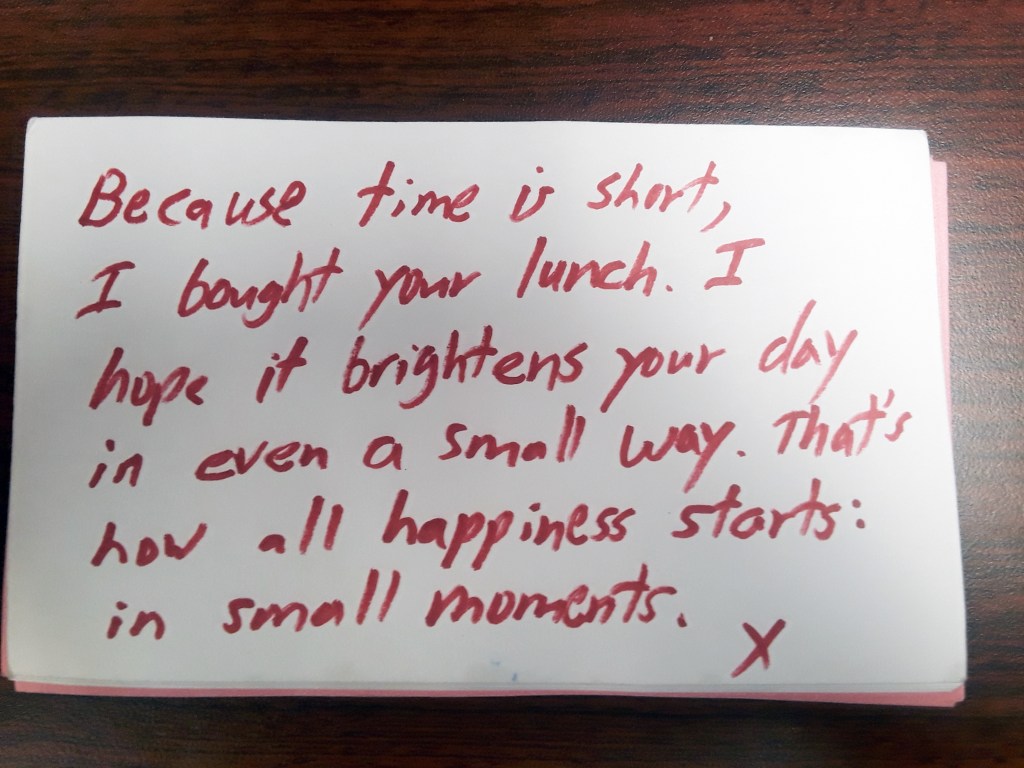 Because time is short,
I bought your lunch. I
hope it brightens your day
in even a small way. That's
how all happiness starts:
in small moments.
X